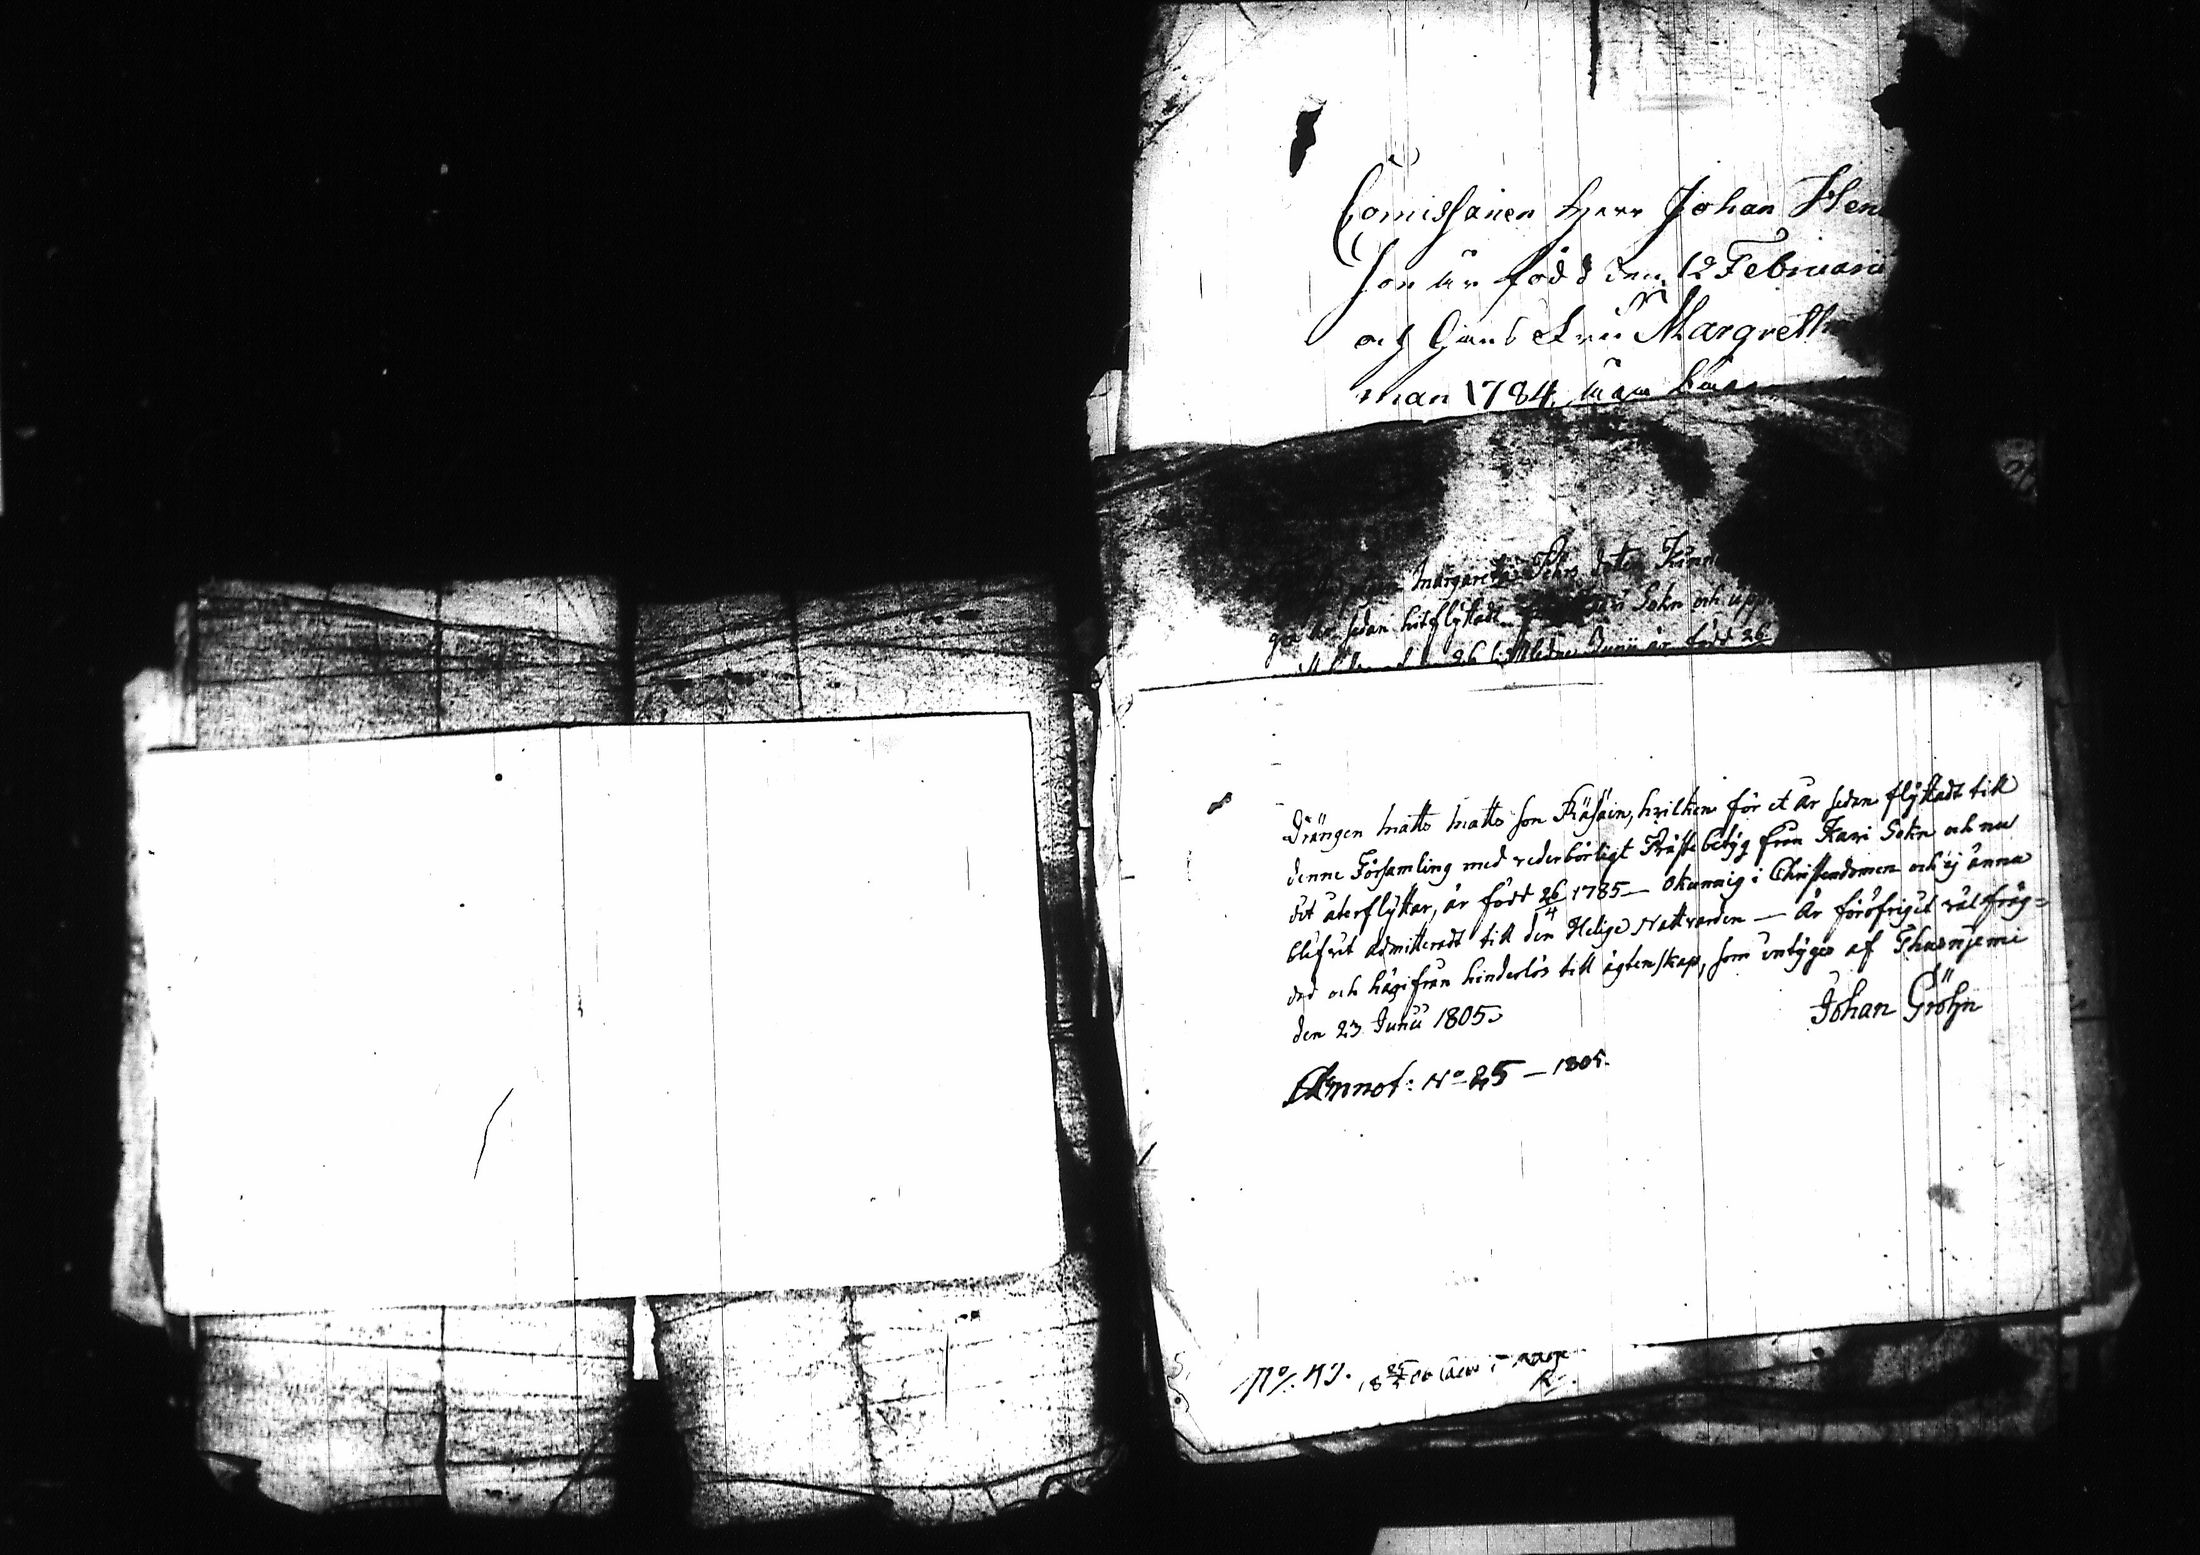 Comissarien Herr Johan Hen
son är född den 12 Februarii
och Hans Fru Margreth
man 1784,
Margareta Pehrs doter
sedan hitflyttadt Sokn och upp
Junii är född 26
Drängen Matts Matts son Räsäin, hvilken för et år sedan flyttadt till
denne Församling med vederbörligt Prästebetyg från Kavi Sokn och nu
dit återflyttar, är född 26/4 1785 — Okunnig i Christendomen och ej ännu
blifvit admitteradt till den Helige Nattvarden — Är föröfrigit välfräg=
dad och härifrån hinderlös till ägtenskap, som intygas af
den 23 Junii 1805. Johan Gröhn
Annot: No 25 — 1805.
No/. 43.